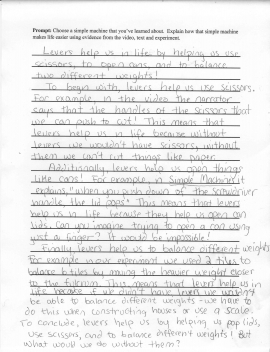 Prompt: Choose a simple machine that you've learned about. Explain how that simple machine
makes life easier using evidence from the video, text and experiment.
Levers help us in life by helping us use
scissors, to open cans, and to balance
two different weights!
To begin with, levers help us use scissors.
For example, in the video the narrator
says that the handles of the scissors
we can push to cut! This means that
levers help us in life because without
levers we wouldn't have scissors, without
them we can't cut things like paper.
Additionally, levers help us open things
like cans! For example in Simple Machines it
explains, "when you push down of the screwdriver
handle, the lid pops" This means that levers
help us in life because they help us open
lids. Can you imagine trying to open a can using
just a finger? It would be impossible!
Finally levers help us to balance different weights
For example in our experiment we used 2 tiles to
balance 6 tiles by moving the heavier weight closer
to the fulcrum. This means that lever help us in
life because if we didn't have levers we wouldn't
be able to balance different weights - we have to
do this when constructing houses or use a scale.
To conclude, levers help us by helping us pop lids,
use scissors, and to balance different weights! But
what would we do without them?